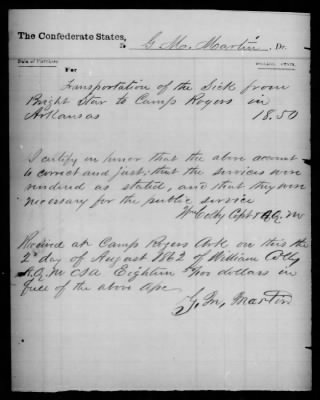 The Confederate States,
To G. M. Martin Dr.
Date of Purchase. DOLLARS. CENTS.
For
Transportation of the Sick from
Bright Star to Camp Rogers in
Arkansas 18.50
I certify on honor that the above account
is correct and just; that the services were
rendered as stated, and that they were
necessary for the public service
Wm Coty Capt & A.Q.M
Received at Camp Rogers Ark on this the
2d day of August 1862 of William Coty
A.Q.M CSA Eighteen dollars in
full of the above Apc
G. M. Martin